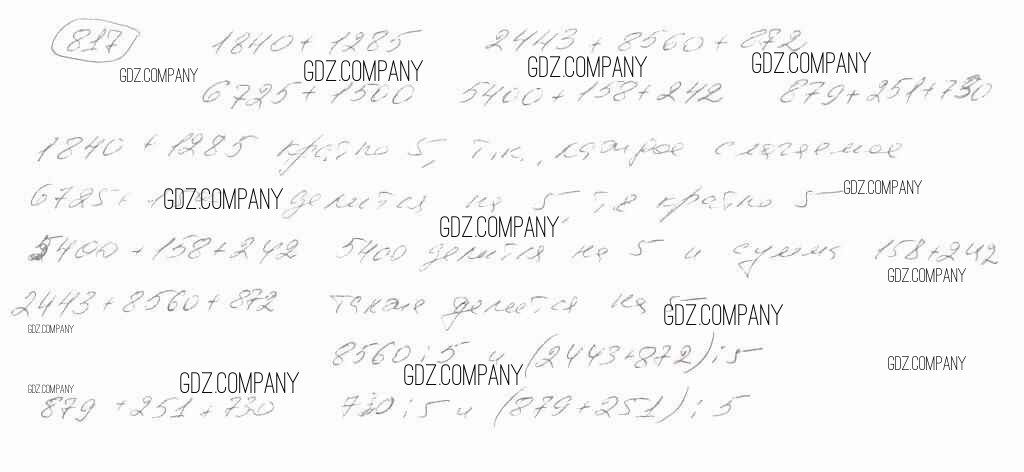 817 1840 + 1285 2443 + 8560 + 872
GDZ.COMPANY GDZ.COMPANY GDZ.COMPANY GDZ.COMPANY
6725 + 1500 5400 + 158 + 242 879 + 251 + 730
1840 + 1285 кратно 5, т.к. каждое слагаемое
6725 + GDZ.COMPANY делится на 5, т.е кратно 5 GDZ.COMPANY
GDZ.COMPANY
5400 + 158 + 242 5400 делится на 5 и сумма 158 + 242
GDZ.COMPANY
2443 + 8560 + 872 также делится на 5
GDZ.COMPANY GDZ.COMPANY
8560 ⋮ 5 и (2443 + 872) ⋮ 5
GDZ.COMPANY GDZ.COMPANY GDZ.COMPANY GDZ.COMPANY
879 + 251 + 730 730 ⋮ 5 и (879 + 251) ⋮ 5